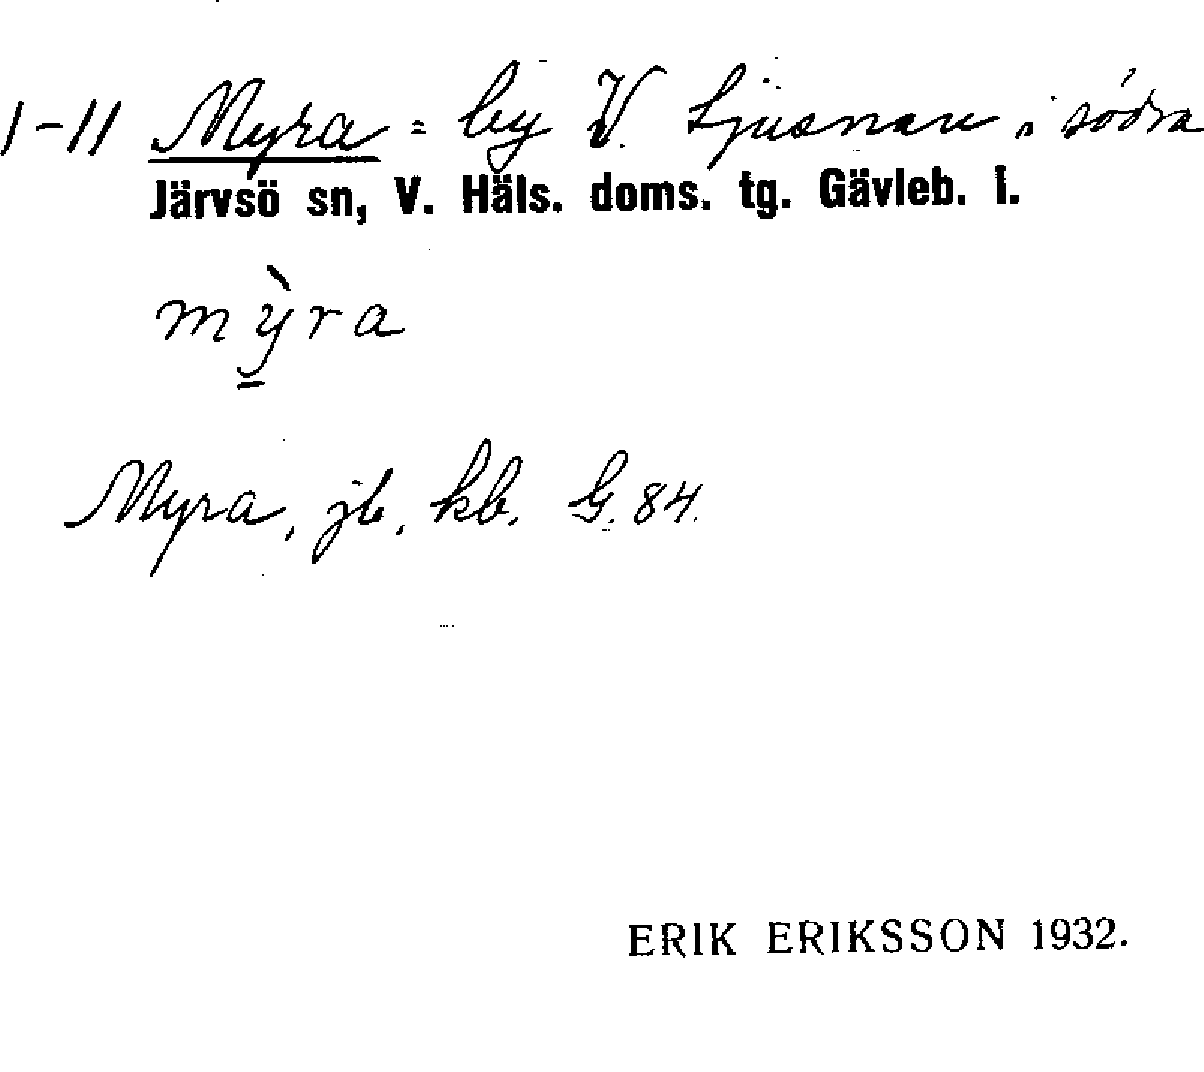 1-11 Myra = by V. Ljusnan, i södra
Järvsö sn, V. Häls. doms. tg. Gävleb. l.
mỳra
Myra, jb, kb. G. 84.
ERIK ERIKSSON 1932.